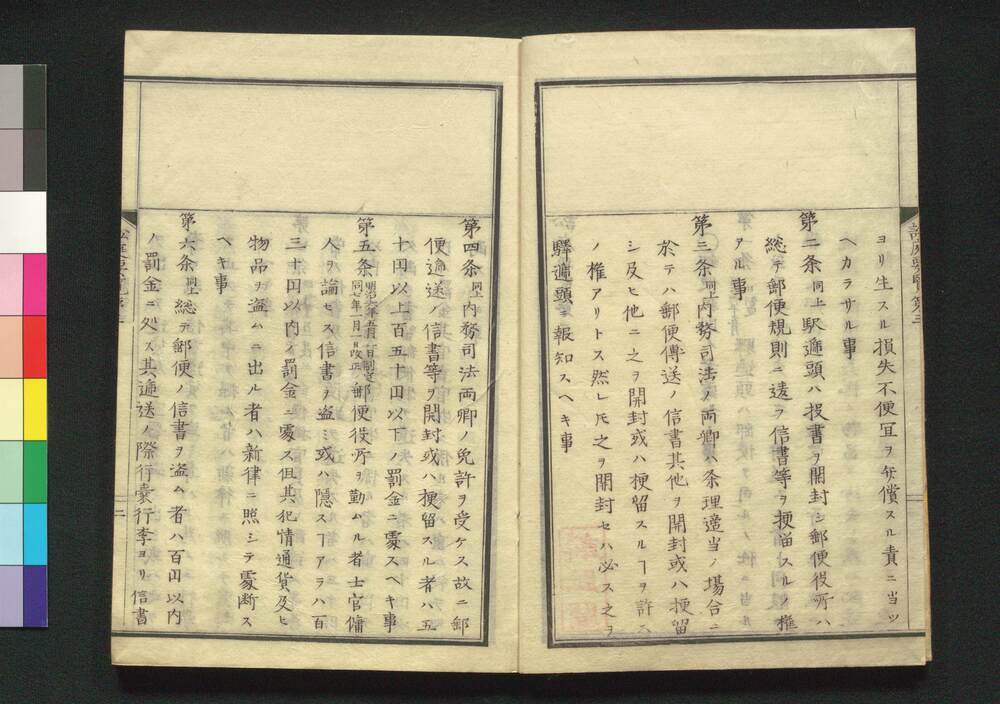 ヨリ生スル損失不便宜ヲ弁償スル責ニ当ツ
ヘカラサル事
第二条同上駅逓頭ハ投書ヲ開封シ郵便役所ハ
総テ郵便規則ニ違フ信書等ヲ梗留スルノ権
アル事
第三条同上内務司法ノ両卿ハ条理適当ノ場合ニ
於テハ郵便傳送ノ信書其他ヲ開封或ハ梗留
シ及ヒ他ニ之ヲ開封或ハ梗留スルヿヲ許ス
ノ権アリトス然レ𪜈之ヲ開封セハ必ス之ヲ
驛逓頭ニ報知スヘキ事
第四条同上内務司法両卿ノ免許ヲ受ケス故ニ郵
便逓送ノ信書等ヲ開封或ハ梗留スル者ハ五
十円以上百五十円以下ノ罰金ニ處スヘキ事
第五条明治六年五月一日制定同七年一月一日改正郵便役所ヲ勤ムル者士官傭
人ヲ論セス信書ヲ盗シ或ハ隠スヿアラハ百
三十円以内ノ罰金ニ處ス但其犯情通貨及ヒ
物品ヲ盗ムニ出ル者ハ新律ニ照シテ處断ス
ヘキ事
第六条同上総テ郵便ノ信書ヲ盗ム者ハ百円以内
ノ罰金ニ処ス其逓送ノ際行嚢行李ヨリ信書